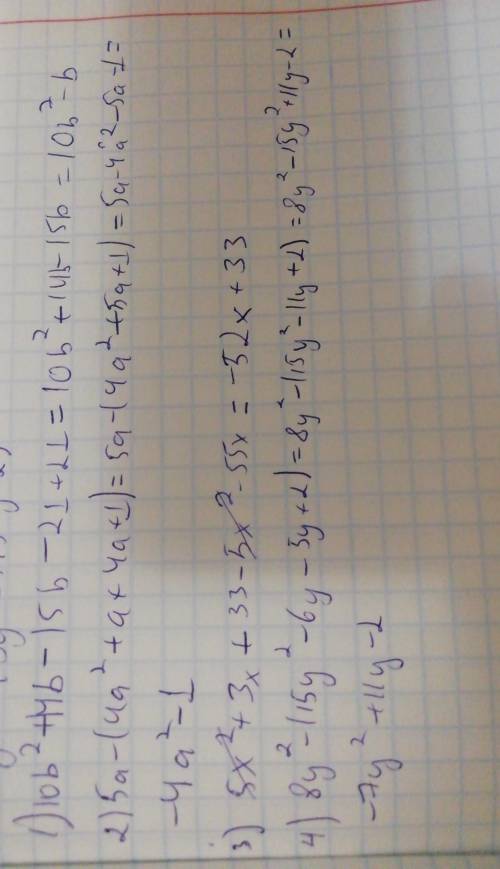 1) 10b² + 14b - 15b - 21 + 21 = 10b² + 14b - 15b = 10b² - b
2) 5a - (4a² + a + 4a + 1) = 5a - (4a² + 5a + 1) = 5a - 4a² - 5a - 1 =
-4a² - 1
3) 5x² + 3x + 33 - 5x² - 55x = -52x + 33
4) 8y² - (15y² - 6y - 5y + 2) = 8y² - (15y² - 11y + 2) = 8y² - 15y² + 11y - 2 =
-7y² + 11y - 2